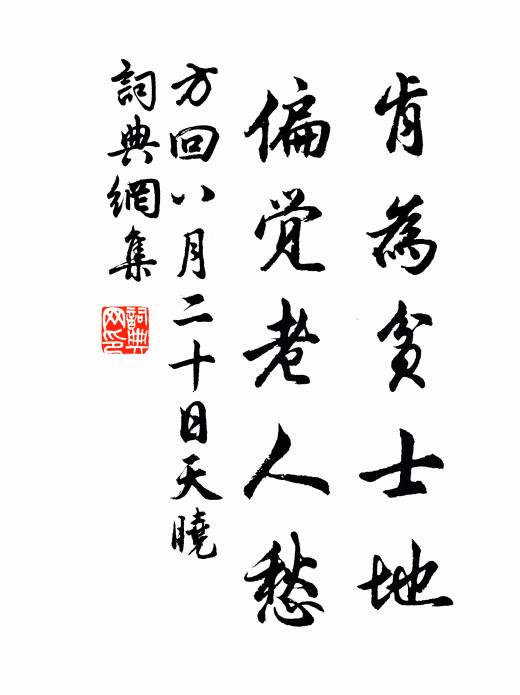 肯為貧士地
偏覺老人愁
方回八月二十日天曉
詞典網集
詞典网印